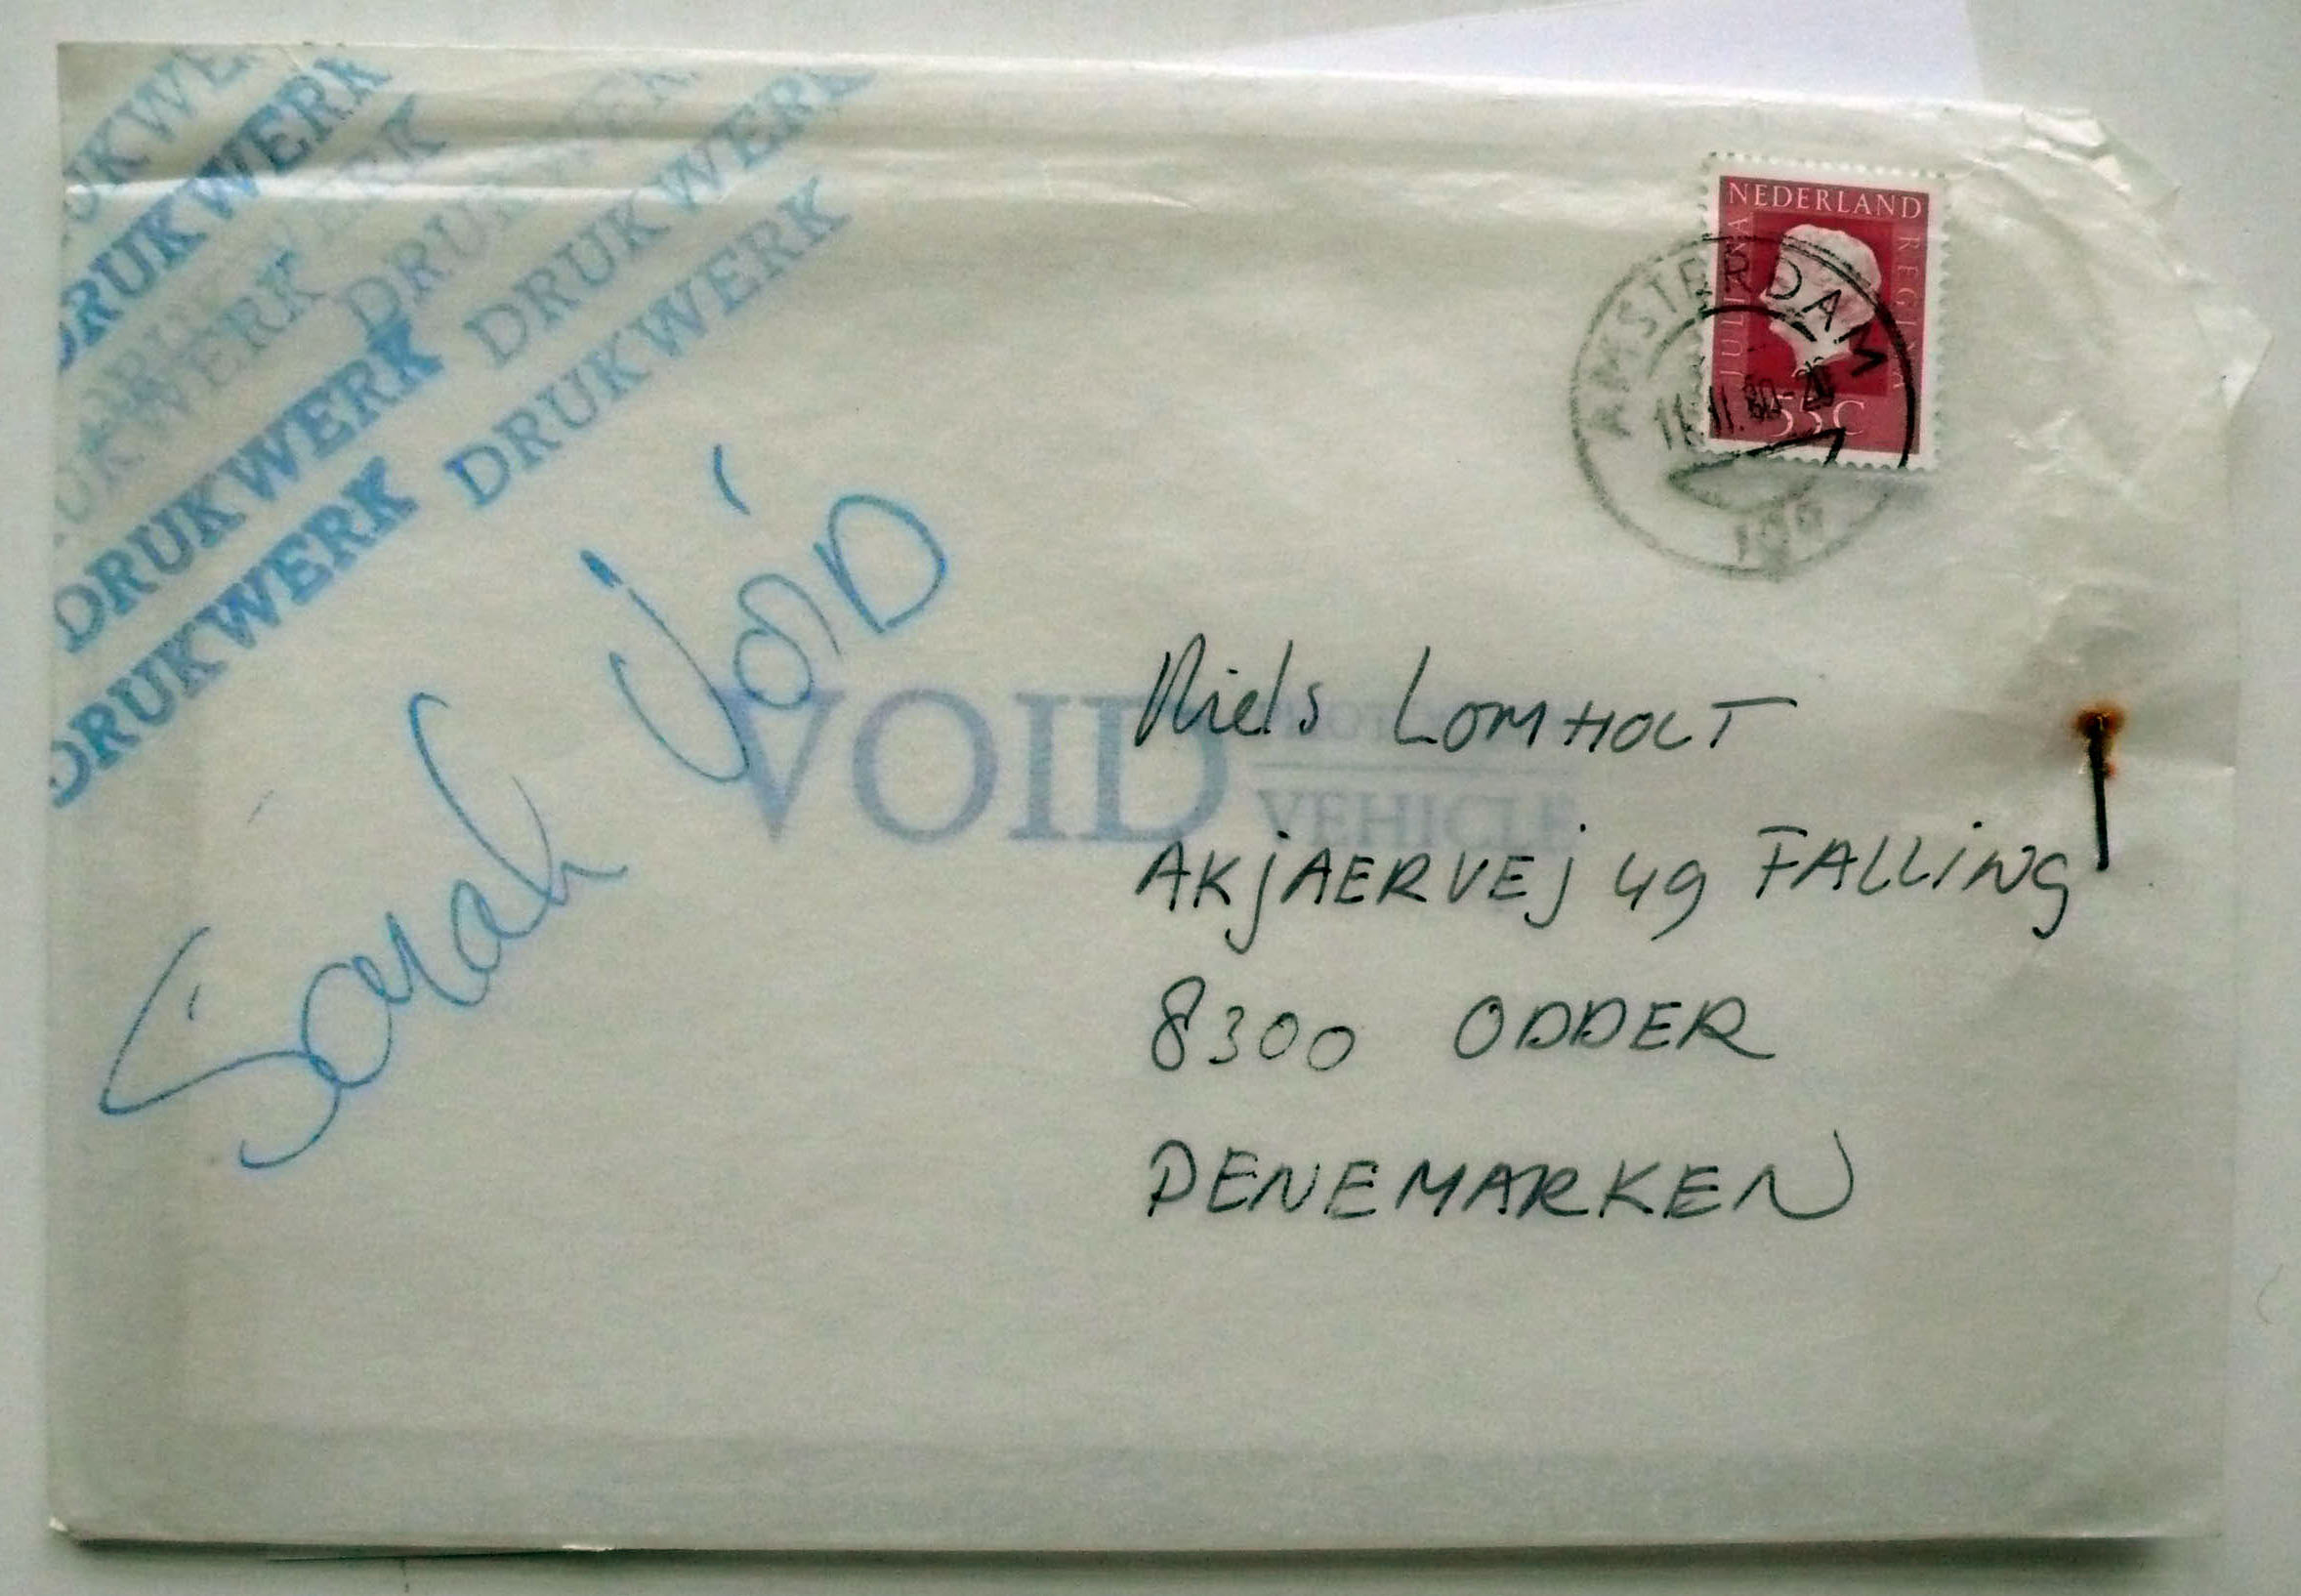 DRUKWERK
DRUKWERK DRUKWERK
DRUKWERK DRUKWERK
DRUKWERK
NEDERLAND
JULIANA REGINA
55C
AMSTERDAM
11.II.80-20
Sarah VOID
VOID
VEHICLE
Niels LOMHOLT
AKjAERVEj 49 FALLiNG
8300 ODDER
DENEMARKEN